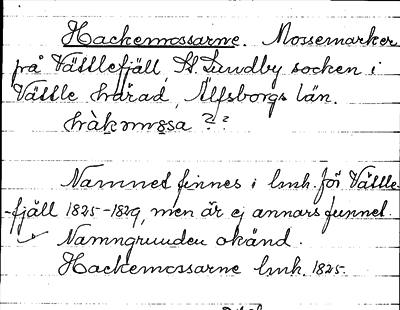 Hackemossarne. Mossemarker
på Vättlefjäll, St. Lundby socken i
Vättle härad, Älfsborgs län.
hàkomssa ??
Namnet finnes i lmh. för Vättle-
-fjäll 1825-1829, men är ej annars funnet.
Namngrunden okänd.
Hackemossarne lmh. 1825.